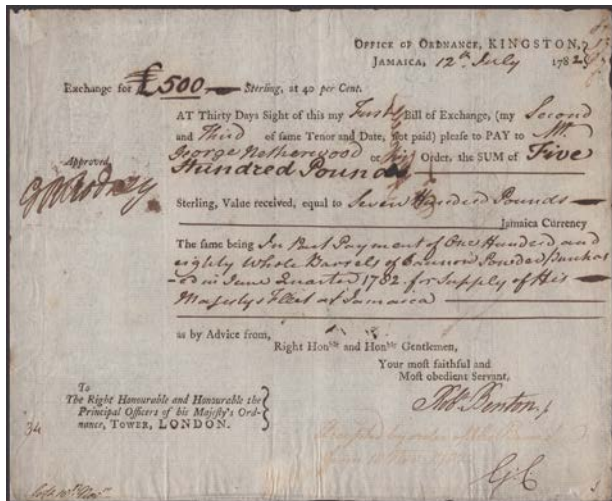 OFFICE OF ORDNANCE, KINGSTON,
JAMAICA, 12th July 1782
Exchange for £500 Sterling, at 40 per Cent.
AT Thirty Days Sight of this my First Bill of Exchange, (my Second
and Third of same Tenor and Date, not paid) please to PAY to Mr.
George Netherwood or his Order, the SUM of Five
Hundred Pounds
Approved
G B Rodney
Sterling, Value received, equal to Seven Hundred Pounds
Jamaica Currency
The same being In Part Payment of One Hundred and
eighty Whole Barrels of Cannon Powder Purchas
-ed in June Quarter 1782 for Supply of His
Majestys Fleet at Jamaica
as by Advice from,
Right Honble and Honble Gentlemen,
Your most faithful and
Most obedient Servant,
Robt Benton
To
The Right Honourable and Honourable the
Principal Officers of his Majesty's Ord-
nance, TOWER, LONDON.
34
Accepted by order of the Board